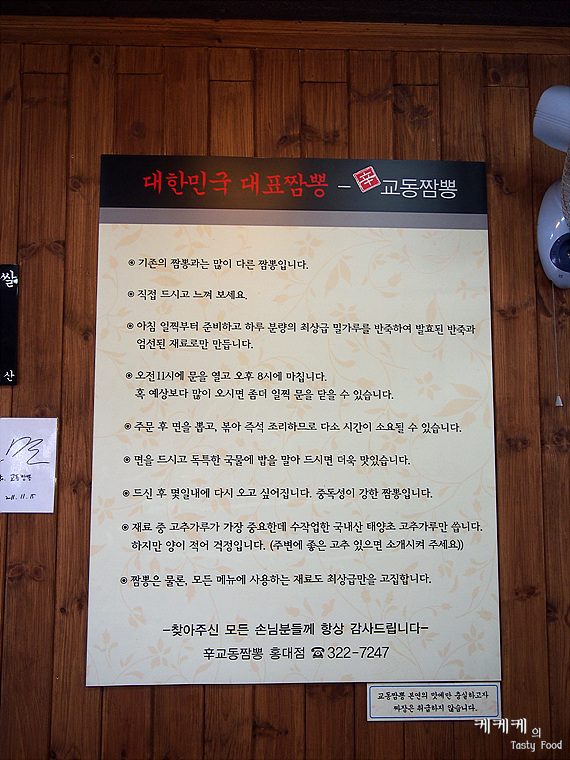 대한민국 대표짬뽕 - 辛 교동짬뽕
◉ 기존의 짬뽕과는 많이 다른 짬뽕입니다.
◉ 직접 드시고 느껴 보세요.
◉ 아침 일찍부터 준비하고 하루 분량의 최상급 밀가루를 반죽하여 발효된 반죽과
엄선된 재료로만 만듭니다.
◉ 오전11시에 문을 열고 오후 8시에 마칩니다.
혹 예상보다 많이 오시면 좀더 일찍 문을 닫을 수 있습니다.
◉ 주문 후 면을 뽑고, 볶아 즉석 조리하므로 다소 시간이 소요될 수 있습니다.
◉ 면을 드시고 독특한 국물에 밥을 말아 드시면 더욱 맛있습니다.
◉ 드신 후 몇일내에 다시 오고 싶어집니다. 중독성이 강한 짬뽕입니다.
◉ 재료 중 고추가루가 가장 중요한데 수작업한 국내산 태양초 고추가루만 씁니다.
하지만 양이 적어 걱정입니다. (주변에 좋은 고추 있으면 소개시켜 주세요))
◉ 짬뽕은 물론, 모든 메뉴에 사용하는 재료도 최상급만을 고집합니다.
-찾아주신 모든 손님분들께 항상 감사드립니다-
辛교동짬뽕 홍대점 ☎322-7247
쌀
산
교동짬뽕
2011.11.15
교동짬뽕 본연의 맛에만 충실하고자
짜장은 취급하지 않습니다.
케케케의
Tasty Food